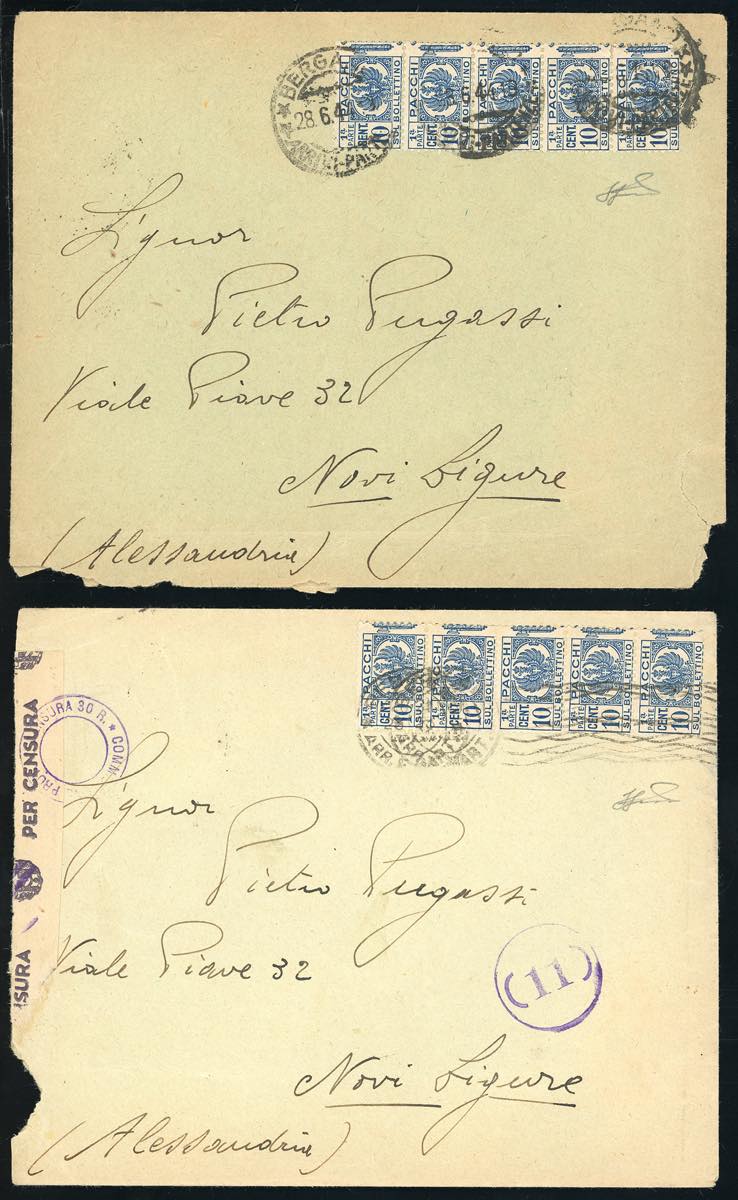 BERGA
28.6.4
ARRIVI-PART
PACCHI PACCHI PACCHI PACCHI PACCHI
1ª PARTE 1ª PARTE 1ª PARTE 1ª PARTE 1ª PARTE
CENT. 10 CENT. 10 CENT. 10 CENT. 10 CENT. 10
SUL BOLLETTINO SUL BOLLETTINO SUL BOLLETTINO
Signor
Pietro Pugassi
Viale Piave 32
Novi Ligure
(Alessandria)
PACCHI PACCHI PACCHI PACCHI PACCHI
1ª PARTE 1ª PARTE 1ª PARTE 1ª PARTE 1ª PARTE
CENT. 10 CENT. 10 CENT. 10 CENT. 10 CENT. 10
SUL BOLLETTINO SUL BOLLETTINO SUL BOLLETTINO SUL BOLLETTINO SUL BOLLETTINO
NSURA 30 R. * COMM
PER CENSURA
SURA
Signor
Pietro Pugassi
Viale Piave 32
(11)
Novi Ligure
(Alessandria)